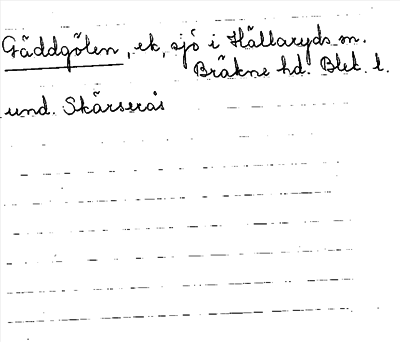 Gäddgölen, ek, sjö i Hällaryds sn.
Bräkne hd. Blek. l.
und. Skärserås